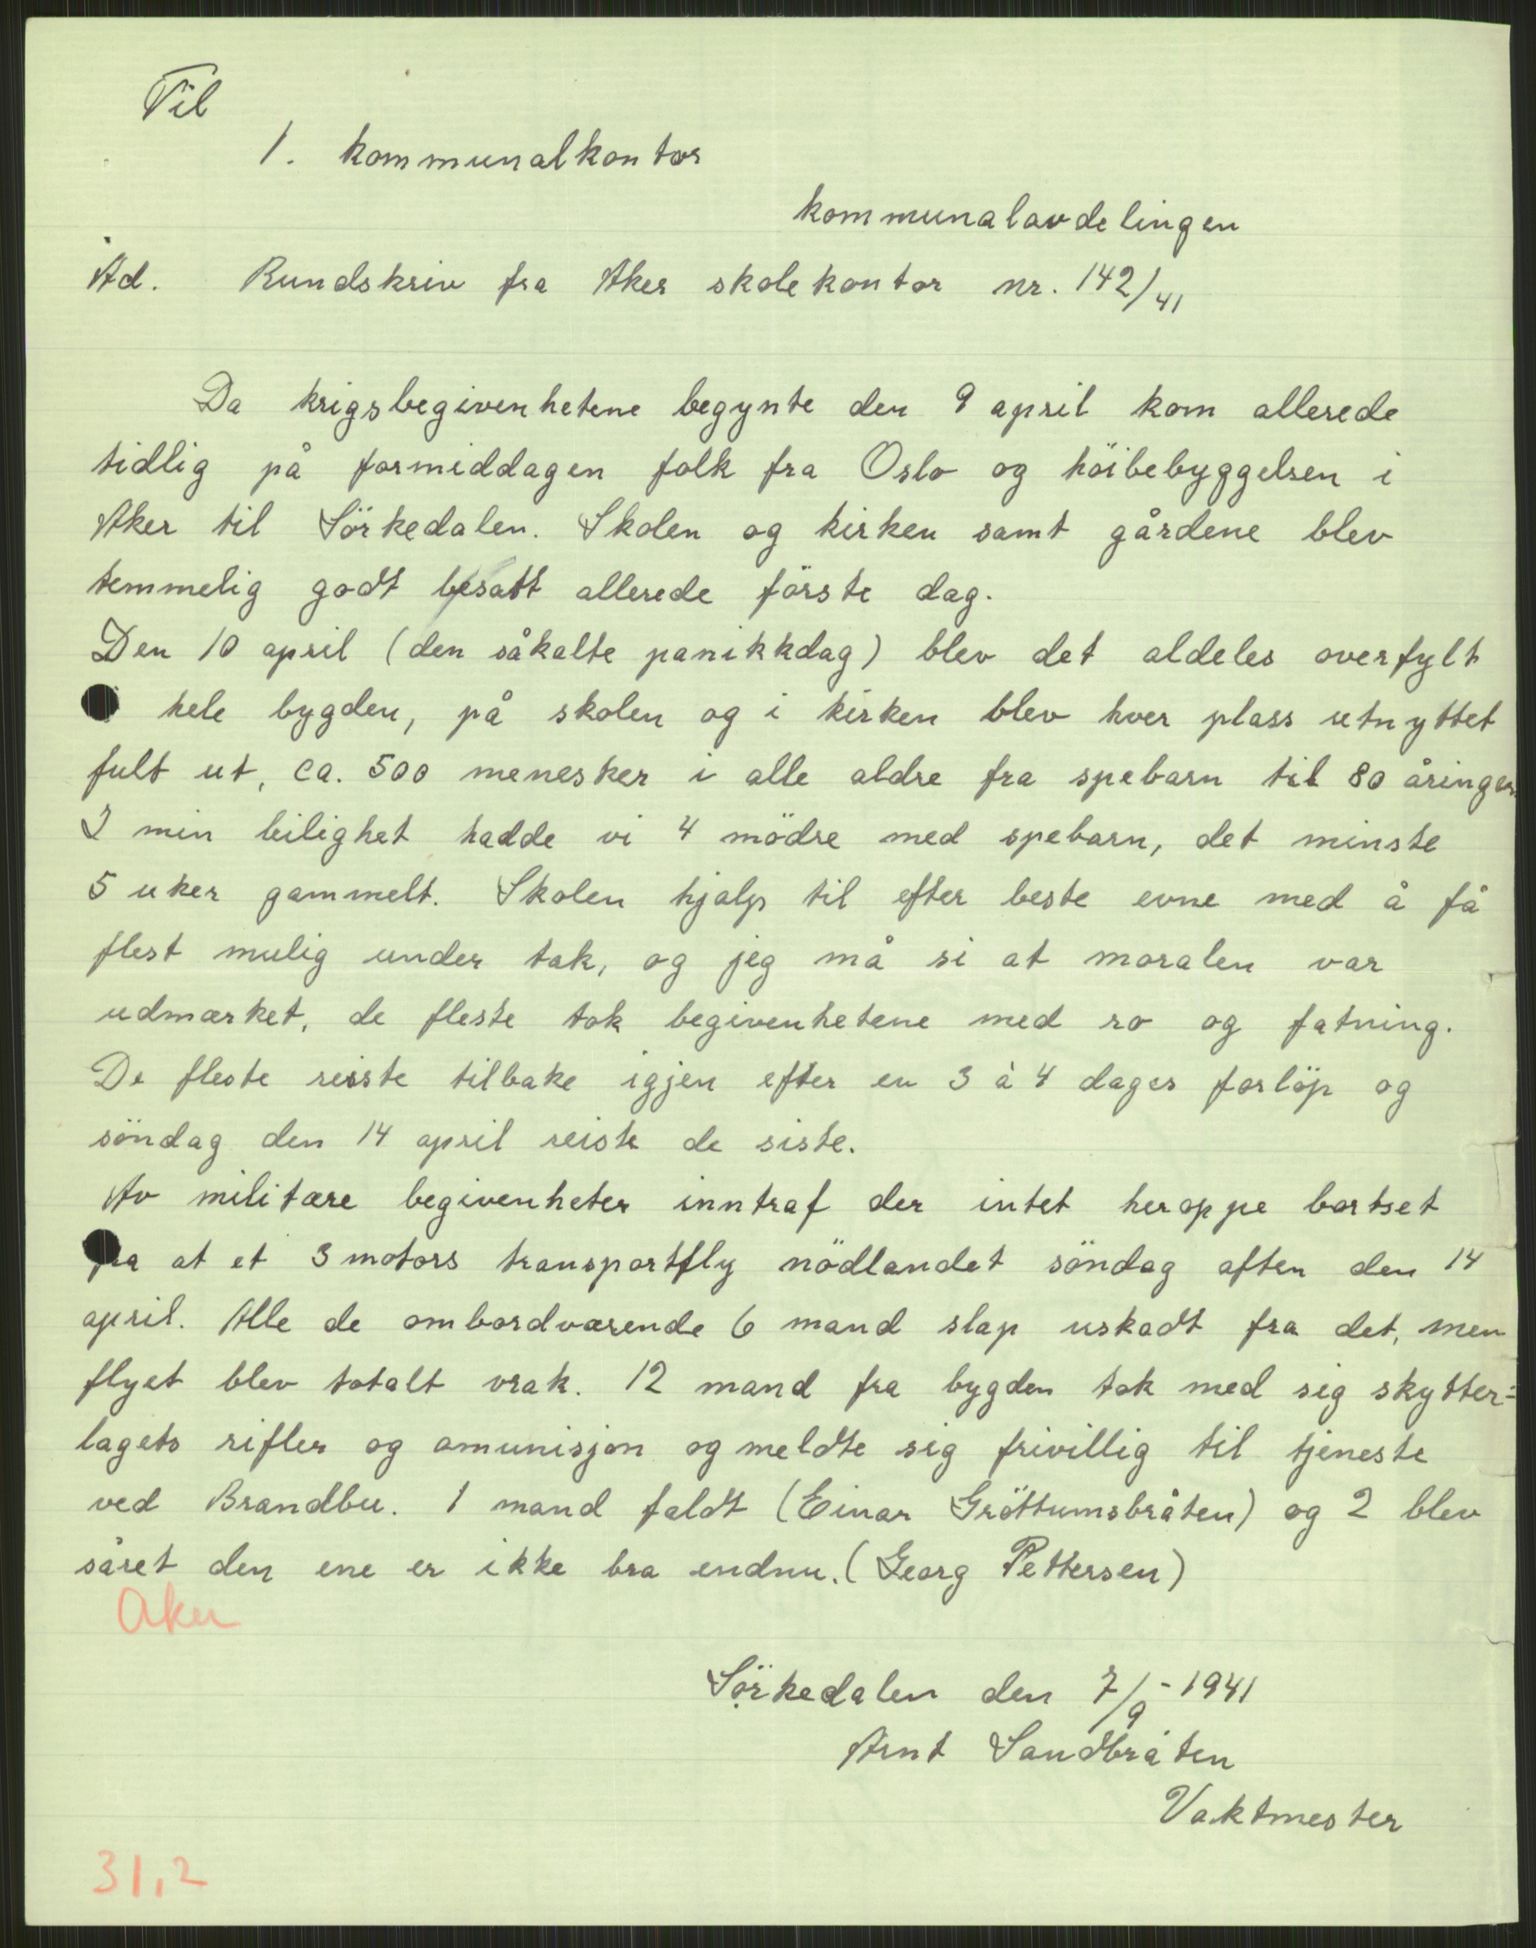 Til
1. kommunalkontor
kommunalavdelingen
Ad. Rundskriv fra Aker skolekontor nr. 142/41
Da krigsbegivenhetene begynte den 9 april kom allerede
tidlig på formiddagen folk fra Oslo og höibebyggelsen i
Aker til Sörkedalen. Skolen og kirken samt gårdene blev
temmelig godt besatt allerede förste dag.
Den 10 april (den såkalte panikkdag) blev det aldeles overfylt
i hele bygden, på skolen og i kirken blev hver plass utnyttet
fult ut, ca. 500 menesker i alle aldre fra spebarn til 80 åringer.
I min leilighet hadde vi 4 mödre med spebarn, det minste
5 uker gammelt. Skolen hjalp til efter beste evne med å få
flest mulig under tak, og jeg må si at moralen var
udmærket, de fleste tok begivenhetene med ro og fatning.
De fleste reiste tilbake igjen efter en 3 à 4 dages forlöp og
söndag den 14 april reiste de siste.
Av militære begivenheter inntraf der intet heroppe bortset
fra at et 3 motors transportfly nödlandet söndag aften den 14
april. Alle de ombordværende 6 mand slap uskadt fra det, men
flyet blev totalt vrak. 12 mand fra bygden tok med sig skytter=
lagets rifler og amunisjon og meldte sig frivillig til tjeneste
ved Brandbu. 1 mand faldt (Einar Gröttumsbråten) og 2 blev
såret den ene er ikke bra endnu. (Georg Pettersen)
Aker
Sörkedalen den 7/9-1941
Arnt Sandbråten
Vaktmester
31,2